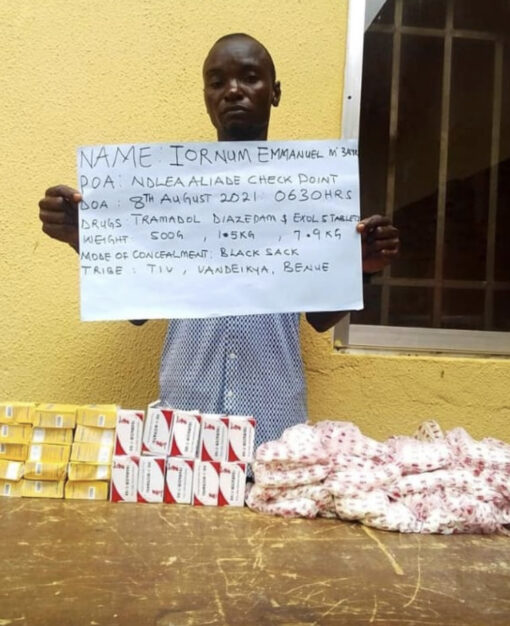 NAME: IORNUM EMMANUEL M
POA: NDLEA ALIADE CHECK POINT
DOA: 8TH AUGUST 2021: 0630HRS
DRUGS: TRAMADOL DIAZEDAM $ EXOL 5 TABLET
WEIGHT: 500G , 1.5KG , 7.9KG
MODE OF CONCEALMENT: BLACK SACK
TRIBE: TIV, VANDEIKYA, BENUE